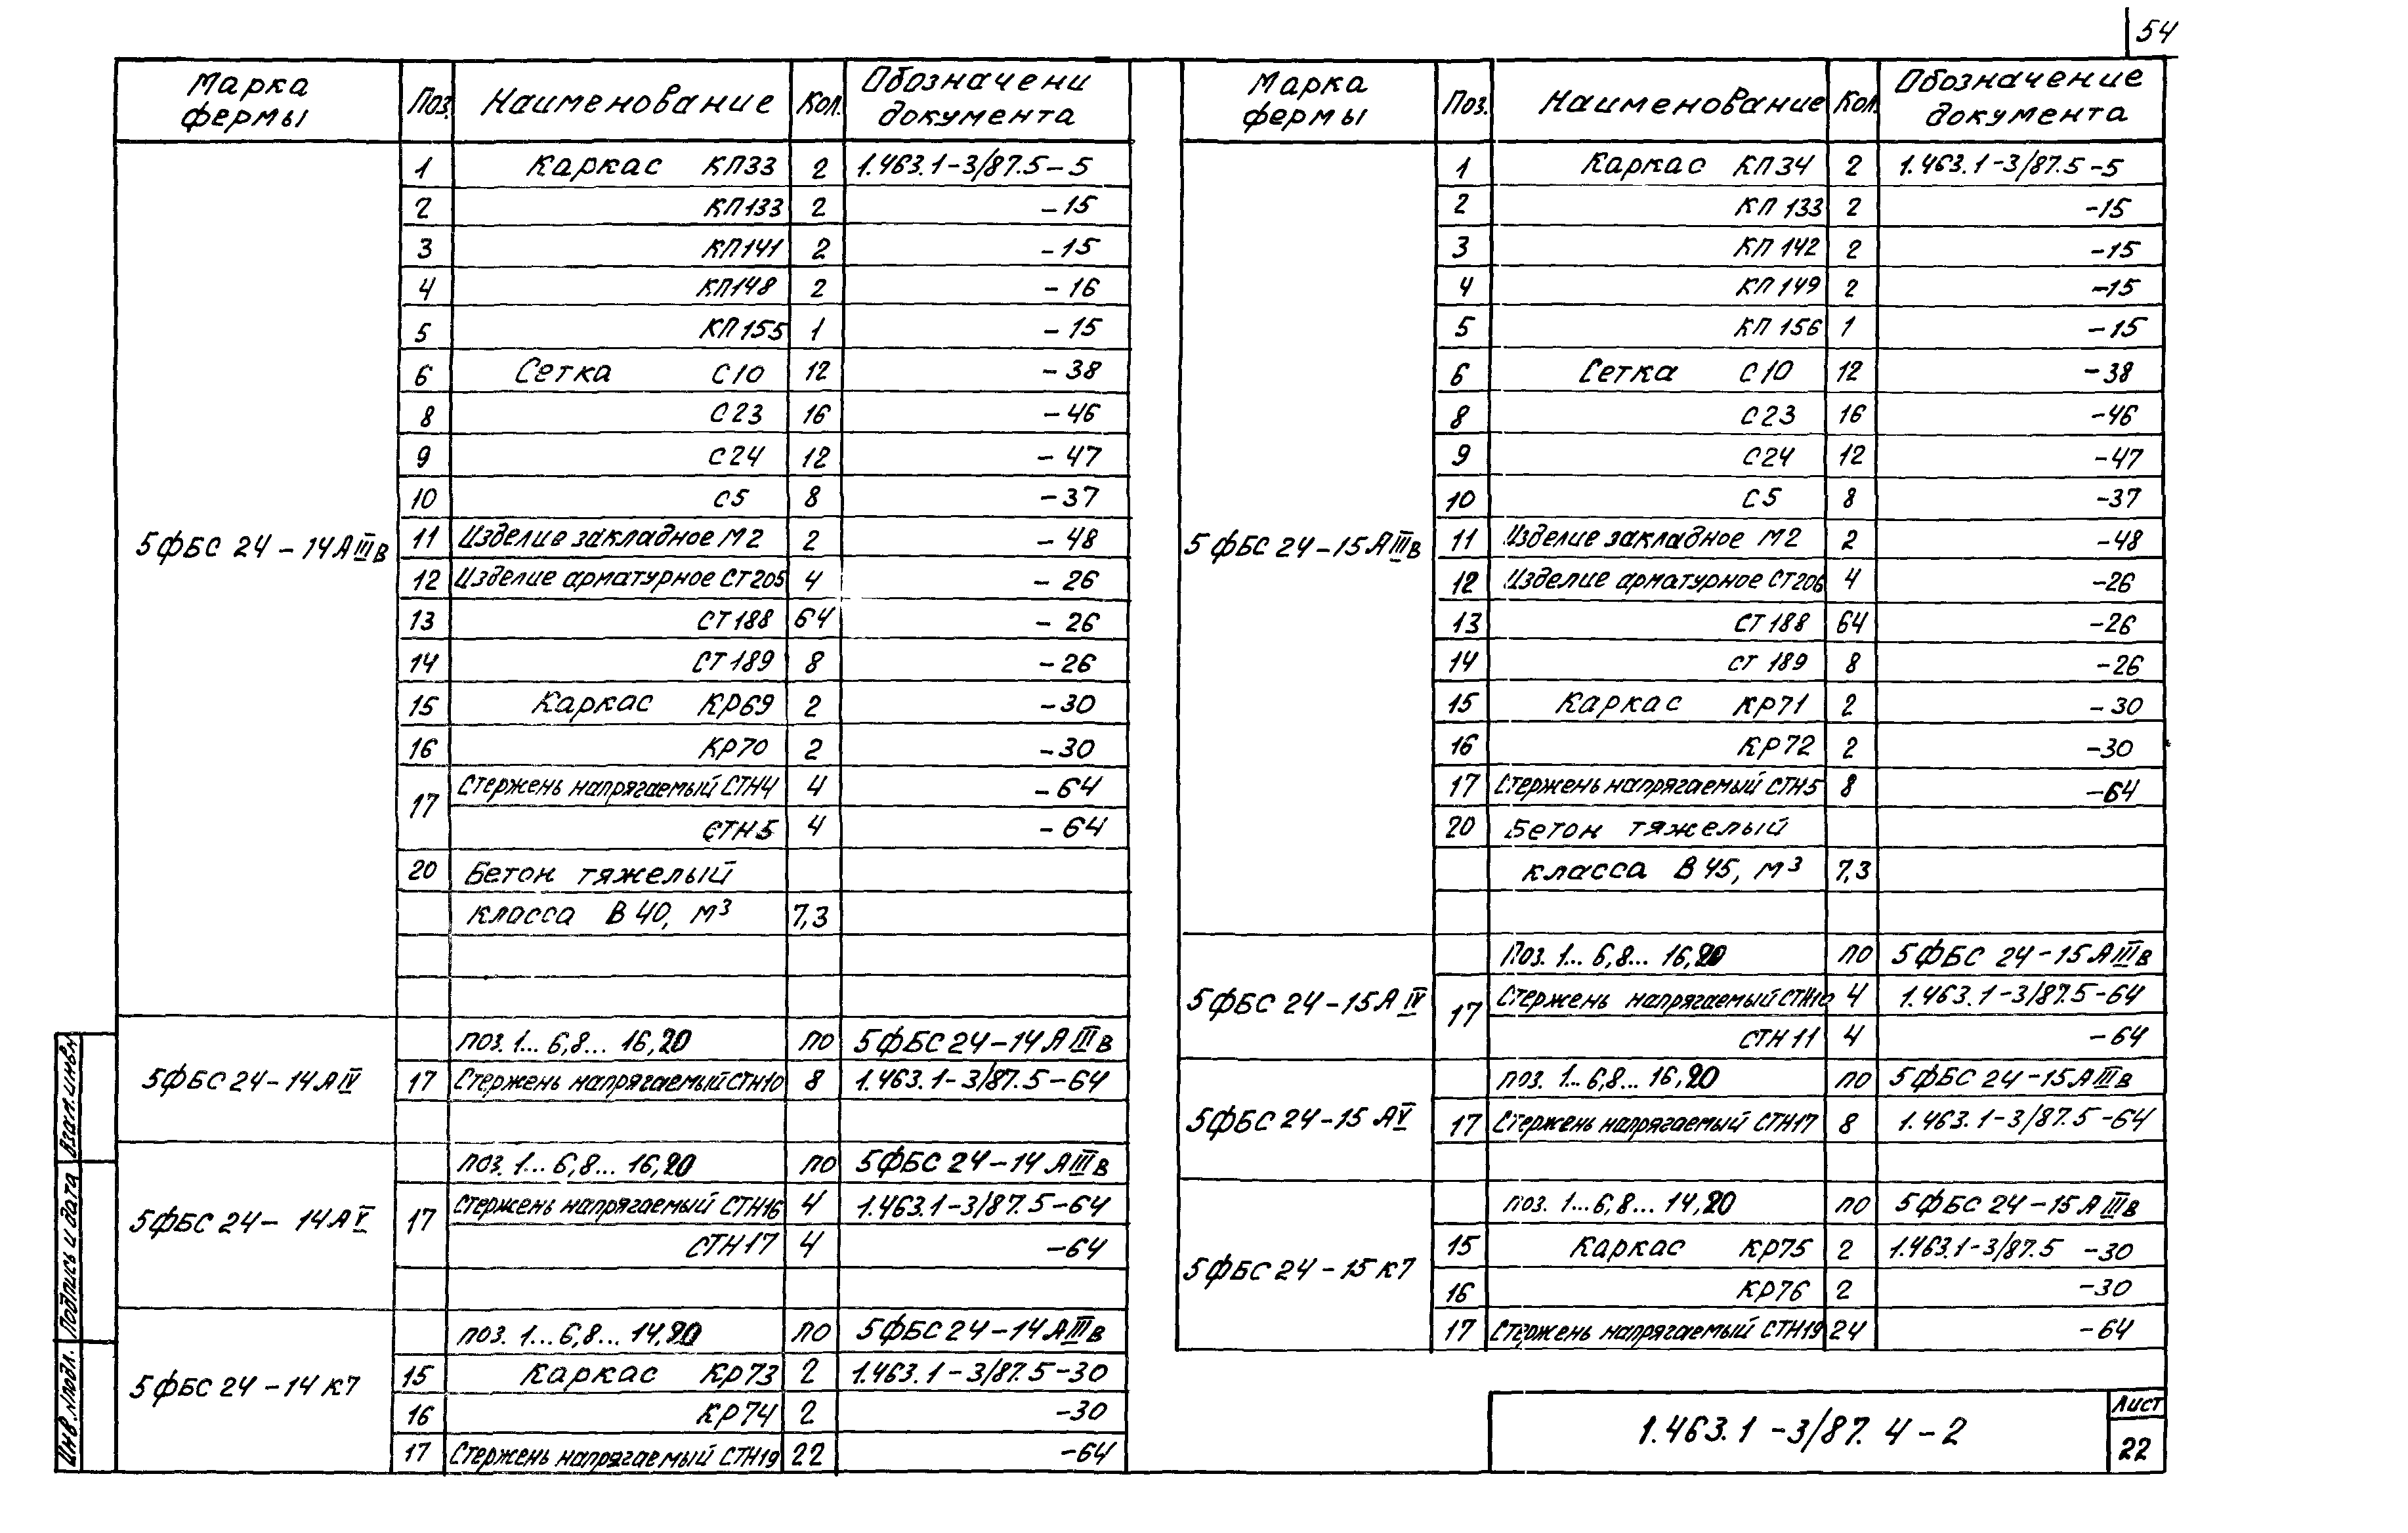 54
Марка фермы Поз. Наименование Кол. Обозначени документа
5ФБС 24-14АIIIв
1 Каркас КП33 2 1.463.1-3/87.5-5
2 КП133 2 -15
3 КП141 2 -15
4 КП148 2 -16
5 КП155 1 -15
6 Сетка С10 12 -38
8 С23 16 -46
9 С24 12 -47
10 С5 8 -37
11 Изделие закладное М2 2 -48
12 Изделие арматурное СТ205 4 -26
13 СТ188 64 -26
14 СТ189 8 -26
15 Каркас КР69 2 -30
16 КР70 2 -30
17 Стержень напрягаемый СТН4 4 -64
СТН5 4 -64
20 Бетон тяжелый
класса В40, м³ 7,3
5ФБС 24-14АIV
поз. 1...6,8...16,20 по 5ФБС 24-14АIIIв
17 Стержень напрягаемый СТН10 8 1.463.1-3/87.5-64
5ФБС 24-14АV
поз. 1...6,8...16,20 по 5ФБС 24-14АIIIв
17 Стержень напрягаемый СТН16 4 1.463.1-3/87.5-64
СТН17 4 -64
5ФБС 24-14К7
поз. 1...6,8...14.20 по 5ФБС 24-14АIIIв
15 Каркас Кр73 2 1.463.1-3/87.5-30
16 КР74 2 -30
17 Стержень напрягаемый СТН19 22 -64
Марка фермы Поз. Наименование Кол. Обозначение документа
5ФБС 24-15АIIIв
1 Каркас КП34 2 1.463.1-3/87.5-5
2 КП133 2 -15
3 КП142 2 -15
4 КП149 2 -15
5 КП156 1 -15
6 Сетка С10 12 -38
8 С23 16 -46
9 С24 12 -47
10 С5 8 -37
11 Изделие закладное М2 2 -48
12 Изделие арматурное СТ206 4 -26
13 СТ188 64 -26
14 СТ189 8 -26
15 Каркас КР71 2 -30
16 КР72 2 -30
17 Стержень напрягаемый СТН5 8 -64
20 Бетон тяжелый
класса В45, м³ 7,3
5ФБС 24-15АIV
Поз. 1...6,8...16,20 по 5ФБС 24-15АIIIв
17 Стержень напрягаемый СТН10 4 1.463.1-3/87.5-64
СТН11 4 -64
5ФБС 24-15АV
поз. 1...6,8...16,20 по 5ФБС 24-15АIIIв
17 Стержень напрягаемый СТН17 8 1.463.1-3/87.5-64
5ФБС 24-15К7
поз. 1...6,8...14,20 по 5ФБС 24-15АIIIв
15 Каркас КР75 2 1.463.1-3/87.5 -30
16 КР76 2 -30
17 Стержень напрягаемый СТН19 24 -64
1.463.1-3/87.4-2
Лист
22
Инв.№подл.
Подпись и дата
Взам.инв№